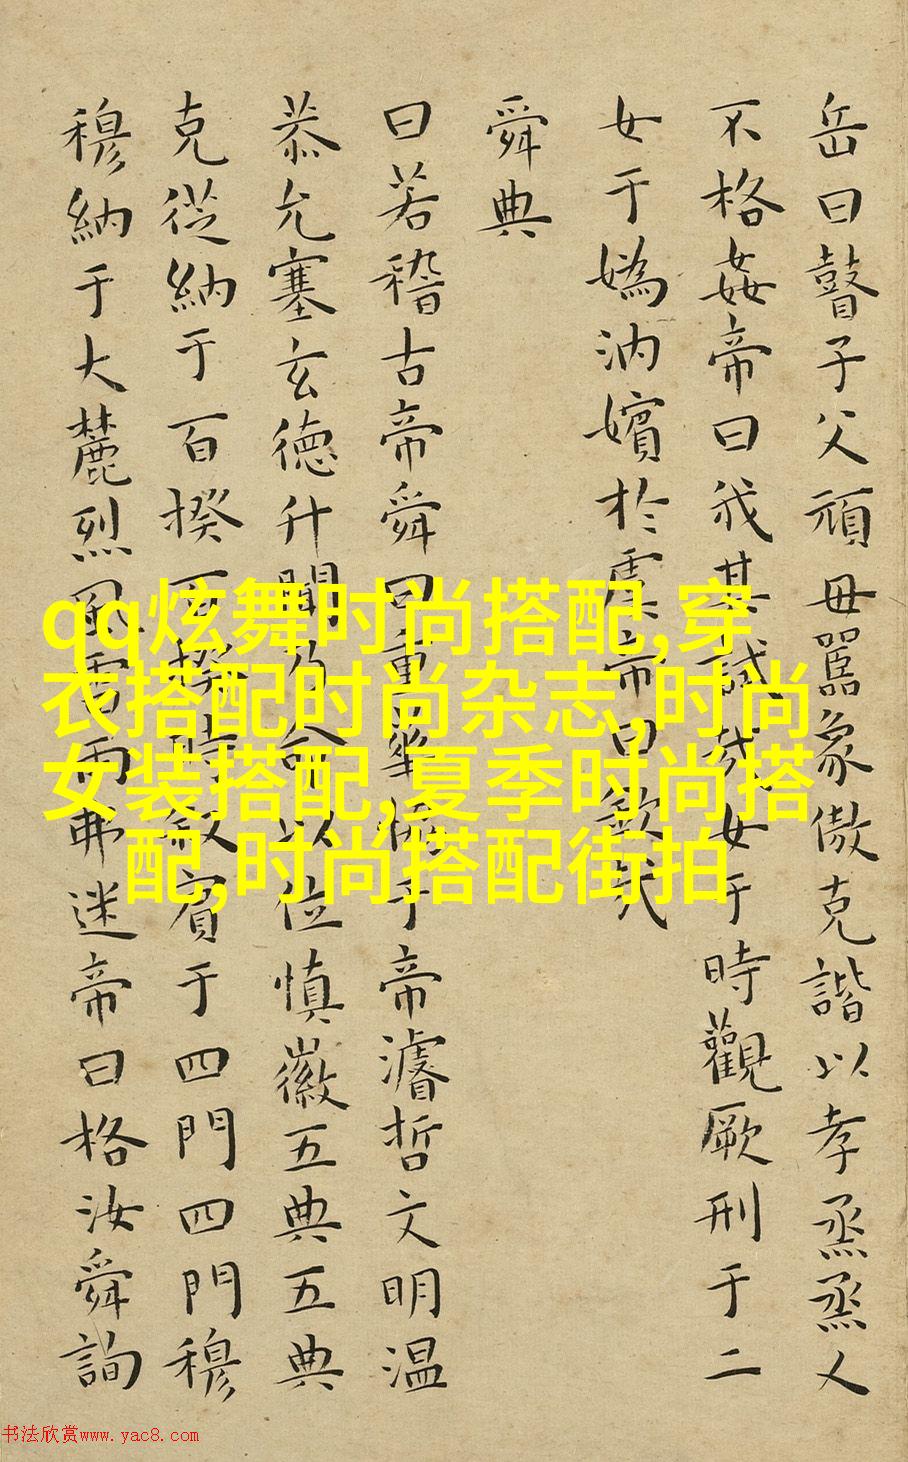 岳曰瞽子父頑毋嚚象傲克諧以孝烝烝乂
不格姦帝曰我其試哉女于時觀厥刑于二
女于嬀汭嬪於虞帝曰欽哉
舜典
曰若稽古帝舜曰重華協于帝濬哲文明温
恭允塞玄德升聞乃命以位慎徽五典五典
克從納于百揆百揆時敘賓于四門四門穆
穆納于大麓烈風雷雨弗迷帝曰格汝舜詢
qq炫舞时尚搭配,穿
衣搭配时尚杂志,时尚
女装搭配,夏季时尚搭
配,时尚搭配街拍
书法欣赏www.yac8.com